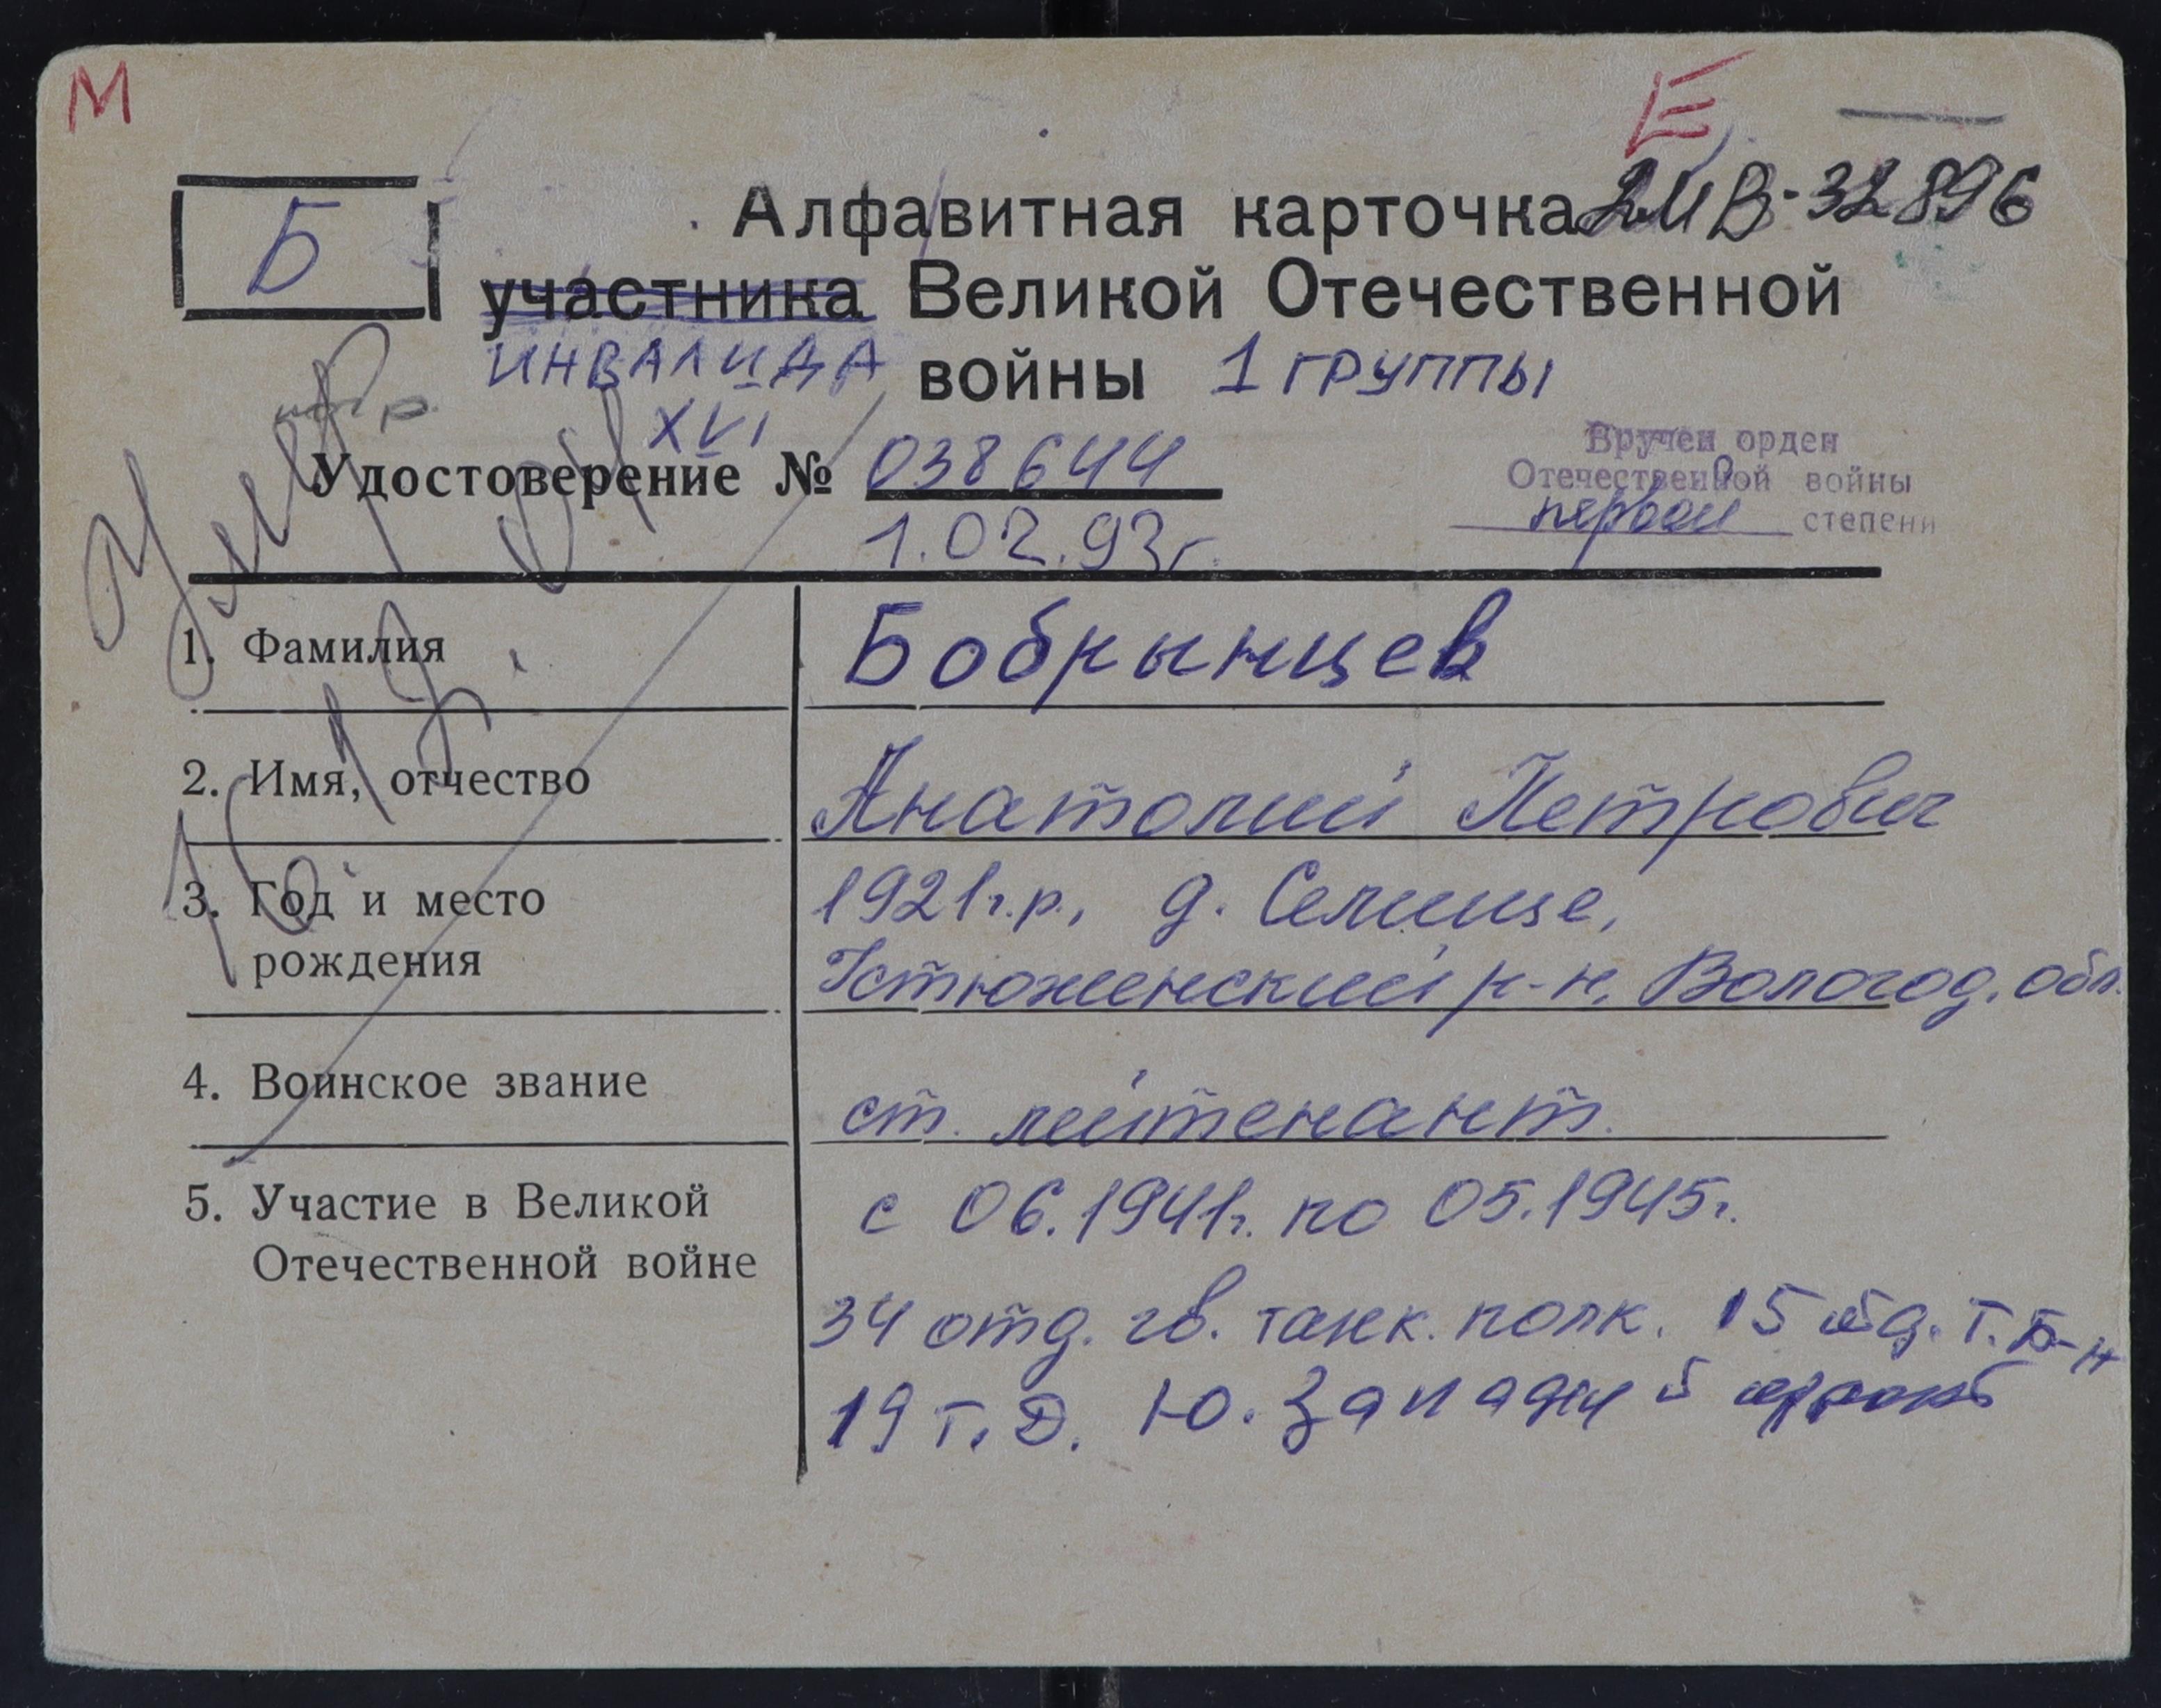 М
Е
Б
Алфавитная карточка
участника Великой Отечественной
ИНВАЛИДА войны 1 ГРУППЫ
XVI
Удостоверение № 038644
1.02.93г.
Вручен орден
Отечественной войны
первой степени
Умер
1. Фамилия Бобрынцев
2. Имя, отчество Анатолий Петрович
3. Год и место 1921г.р., д. Селище,
рождения Устюженский р-н, Вологод. обл.
4. Воинское звание ст. лейтенант.
5. Участие в Великой с 06.1941г. по 05.1945г.
Отечественной войне
34 отд. гв. танк. полк. 15 т. б-н
19 т. д. Ю. Западный фронт